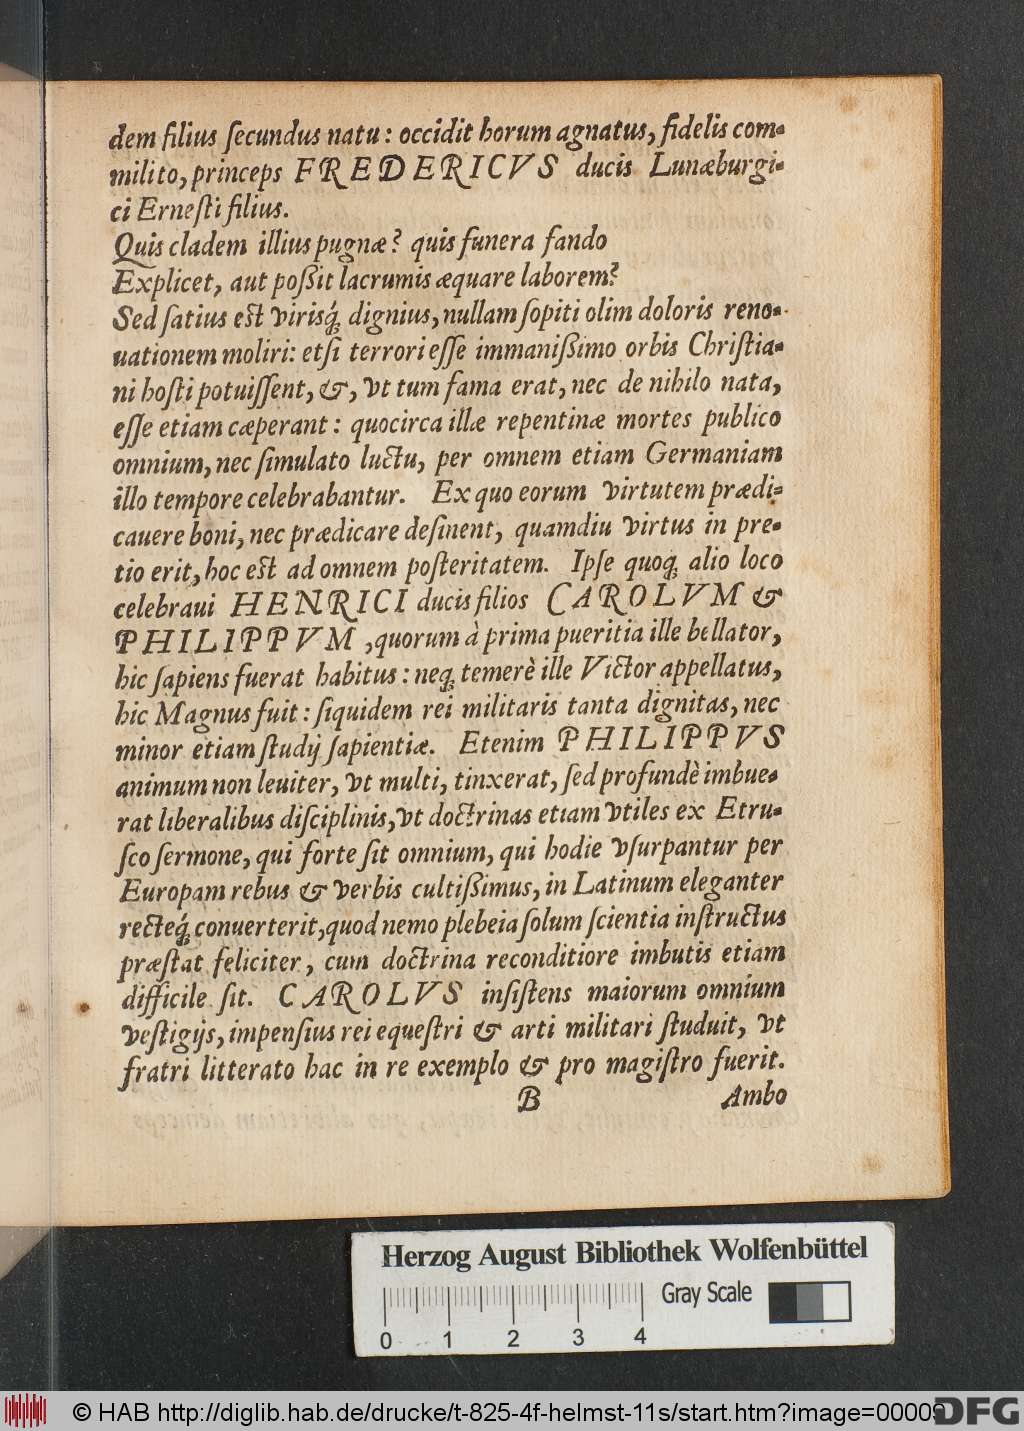 dem filius ſecundus natu: occidit horum agnatus, fidelis com-
milito, princeps FREDERICVS ducis Lunæburgi-
ci Erneſti filius.
Quis cladem illius pugnæ? quis funera fando
Explicet, aut poßit lacrumis æquare laborem?
Sed ſatius eſt virisq́; dignius, nullam ſopiti olim doloris reno-
uationem moliri: etſi terrori eſſe immanißimo orbis Chriſtia-
ni hoſti potuiſſent, &, vt tum fama erat, nec de nihilo nata,
eſſe etiam cæperant: quocirca illæ repentinæ mortes publico
omnium, nec ſimulato luctu, per omnem etiam Germaniam
illo tempore celebrabantur. Ex quo eorum virtutem prædi-
cauere boni, nec prædicare deſinent, quamdiu virtus in pre-
tio erit, hoc eſt ad omnem poſteritatem. Ipſe quoq; alio loco
celebraui HENRICI ducis filios CAROLVM &
PHILIPPVM, quorum à prima pueritia ille bellator,
hic ſapiens fuerat habitus: neq; temerè ille Victor appellatus,
hic Magnus fuit: ſiquidem rei militaris tanta dignitas, nec
minor etiam ſtudij ſapientiæ. Etenim PHILIPPVS
animum non leuiter, vt multi, tinxerat, ſed profundè imbue-
rat liberalibus diſciplinis, vt doctrinas etiam vtiles ex Etru-
ſco ſermone, qui forte ſit omnium, qui hodie vſurpantur per
Europam rebus & verbis cultißimus, in Latinum eleganter
recteq́; conuerterit, quod nemo plebeia ſolum ſcientia inſtructus
præſtat feliciter, cum doctrina reconditiore imbutis etiam
difficile ſit. CAROLVS inſiſtens maiorum omnium
veſtigijs, impenſius rei equeſtri & arti militari ſtuduit, vt
fratri litterato hac in re exemplo & pro magiſtro fuerit.
B Ambo
Herzog August Bibliothek Wolfenbüttel
Gray Scale
0 1 2 3 4
© HAB http://diglib.hab.de/drucke/t-825-4f-helmst-11s/start.htm?image=00009
DFG